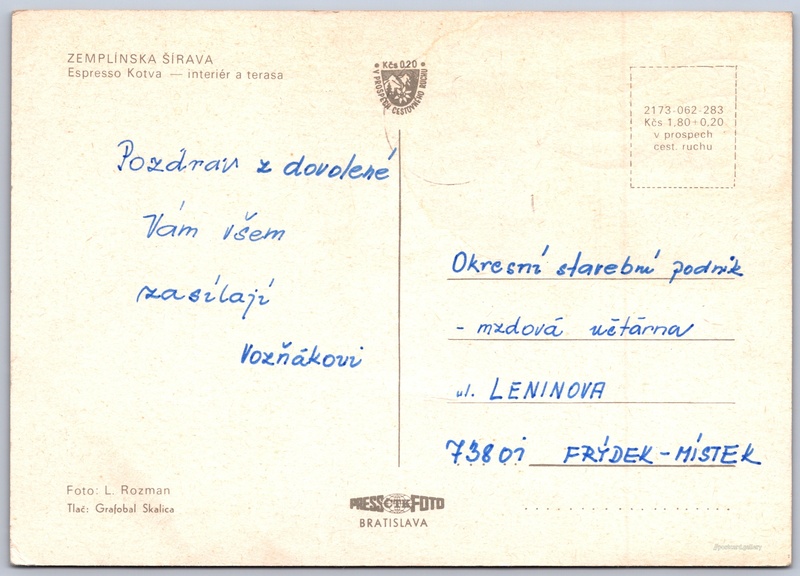 ZEMPLÍNSKA ŠÍRAVA
Espresso Kotva — interiér a terasa
Kčs 0,20
V PROSPECH CESTOVNÉHO RUCHU
2173-062-283
Kčs 1,80+0,20
v prospech
cest. ruchu
Pozdrav z dovolené
Vám všem
zasílají
Vozňákovi
Okresní stavební podnik
- mzdová účtárna
ul. LENINOVA
73801 FRÝDEK-MÍSTEK
Foto: L. Rozman
Tlač: Grafobal Skalica
PRESSČTKFOTO
BRATISLAVA